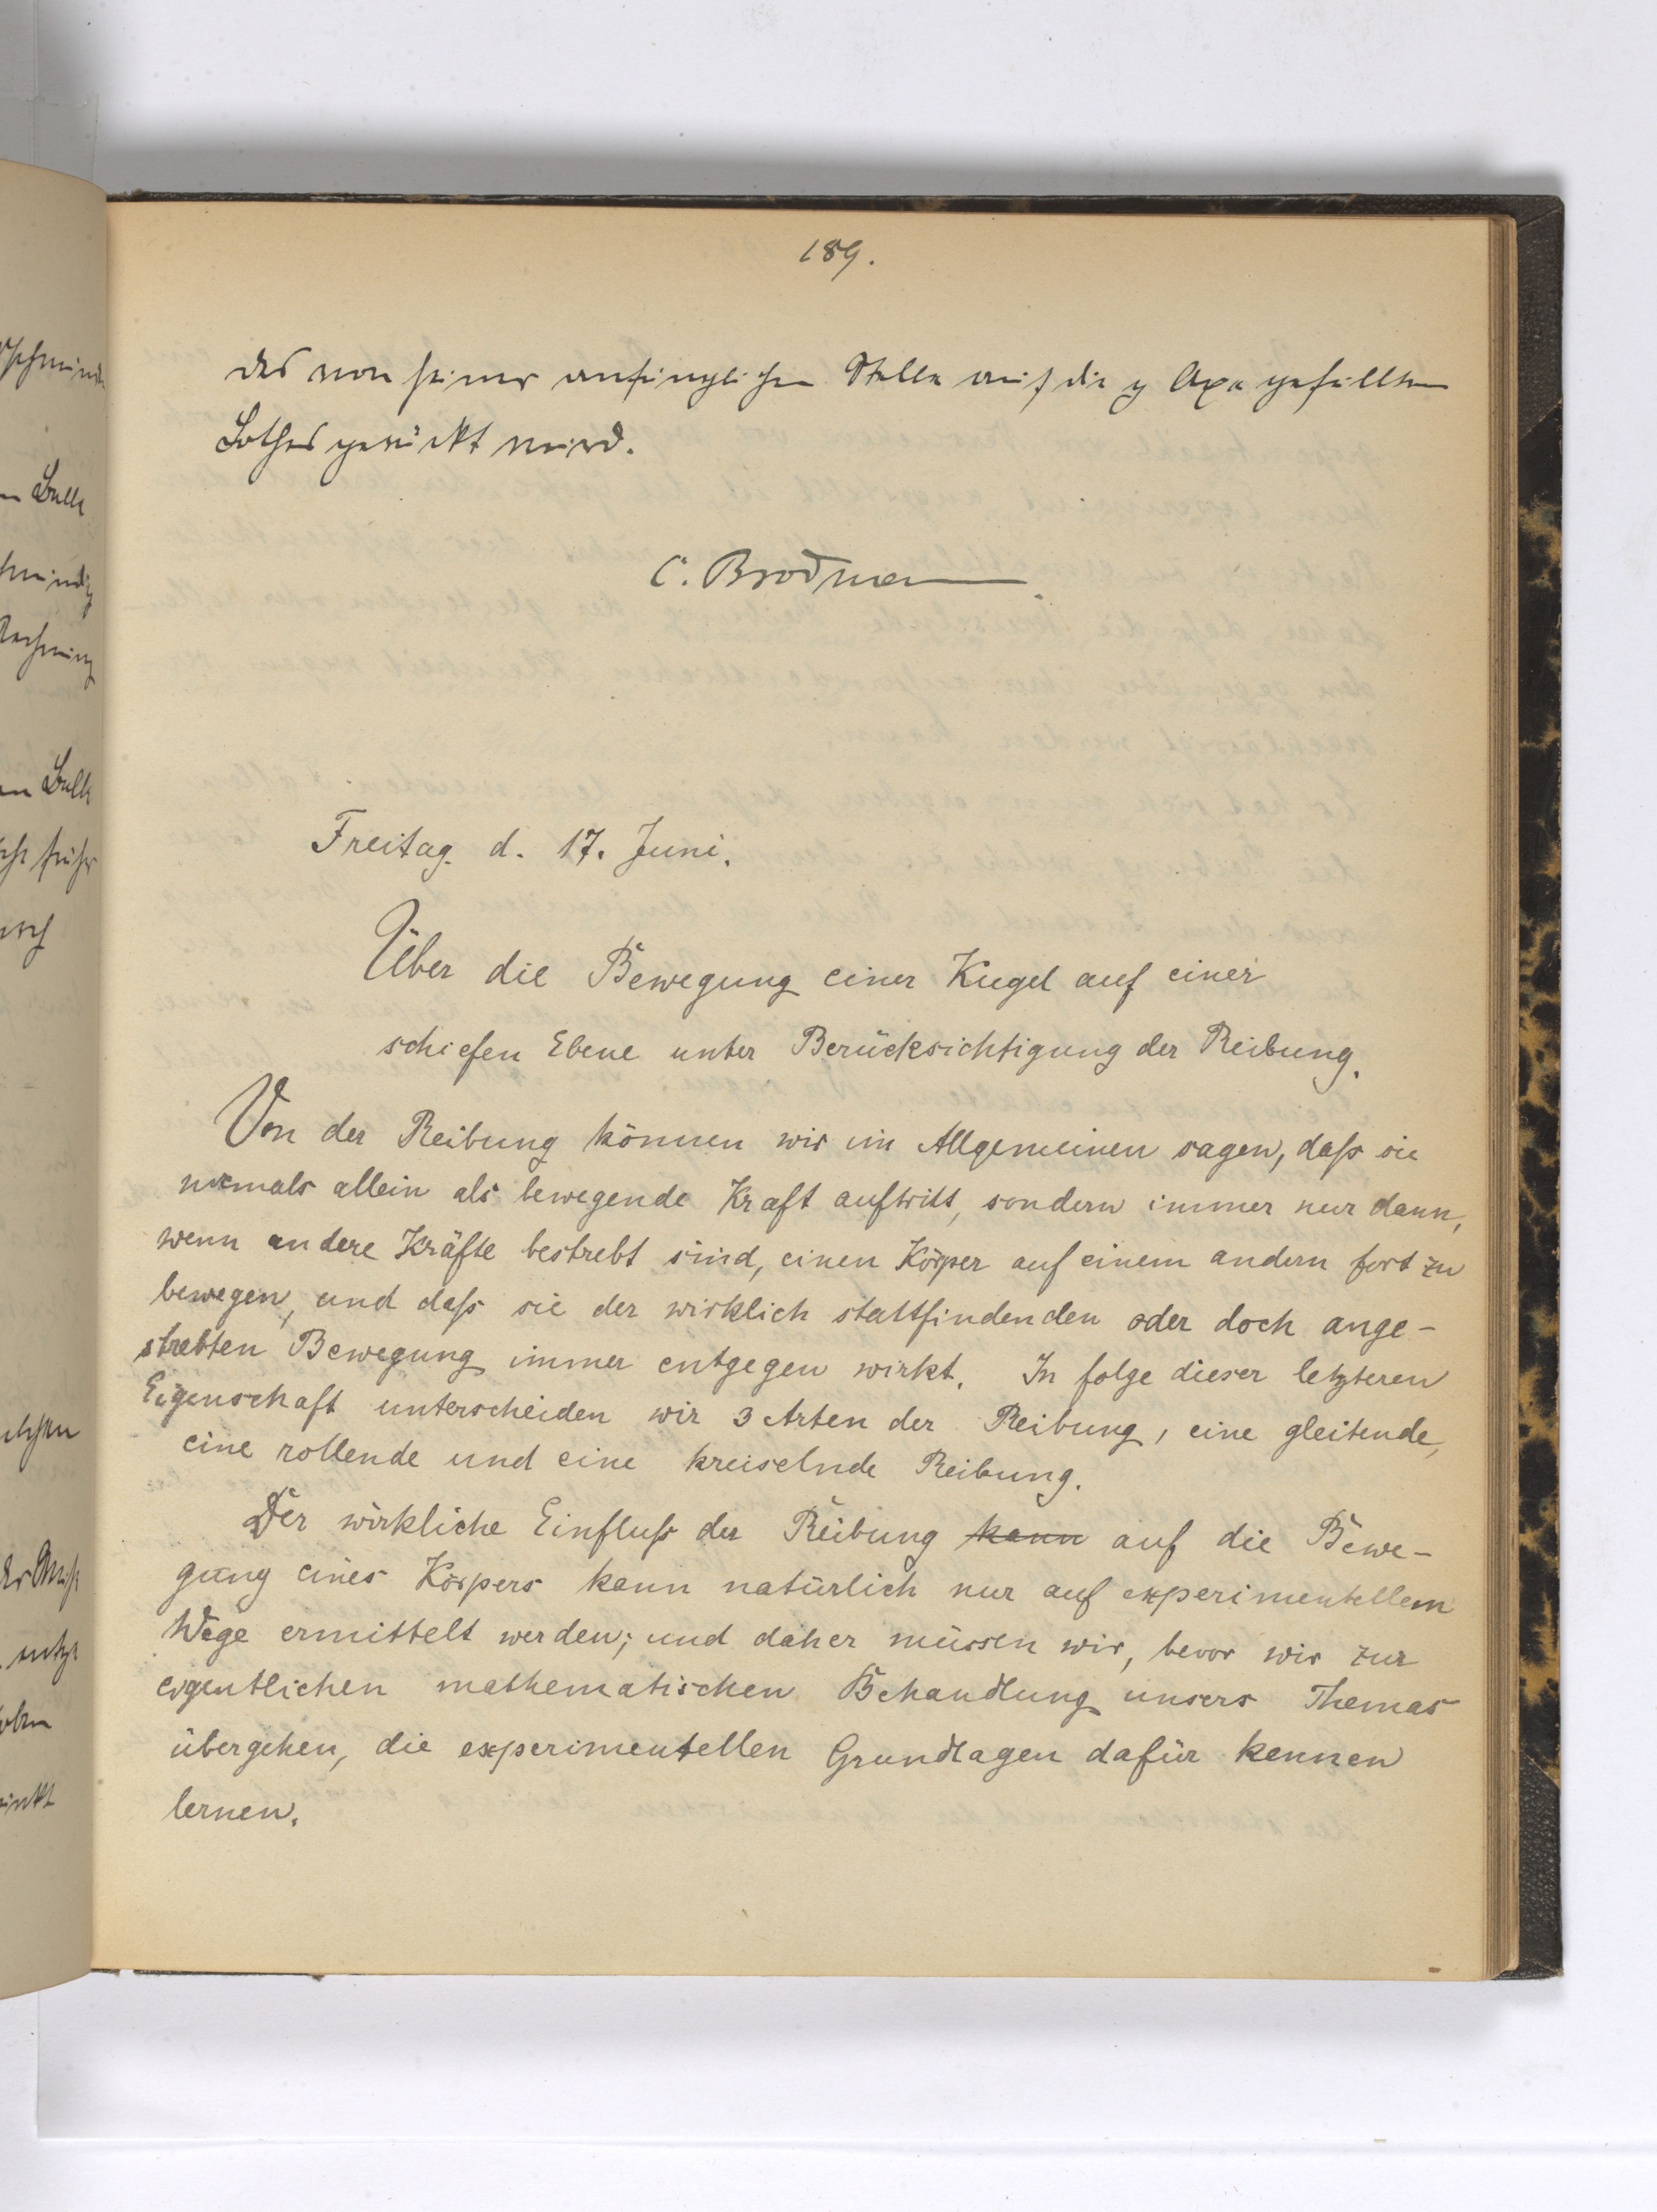 189.
des von seiner anfänglichen Stelle auf die y Axe gefällten
Lothes gerückt wird.
C. Brodmann.
Freitag. d. 17. Juni.
Über die Bewegung einer Kugel auf einer
schiefen Ebene unter Berücksichtigung der Reibung.
Von der Reibung können wir im Allgemeinen sagen, daß sie
niemals allein als bewegende Kraft auftritt, sondern immer nur dann,
wenn andere Kräfte bestrebt sind, einen Körper auf einem andern fort zu
bewegen, und daß sie der wirklich stattfindenden oder doch ange-
strebten Bewegung immer entgegen wirkt. In folge dieser letzteren
Eigenschaft unterscheiden wir 3 Arten der Reibung, eine gleitende,
eine rollende und eine kreiselnde Reibung.
Der wirkliche Einfluß der Reibung kann auf die Bewe-
gung eines Körpers kann natürlich nur auf experimentellem
Wege ermittelt werden; und daher müssen wir, bevor wir zur
eigentlichen mathematischen Behandlung unsers Themas
übergehen, die experimentellen Grundlagen dafür kennen
lernen.